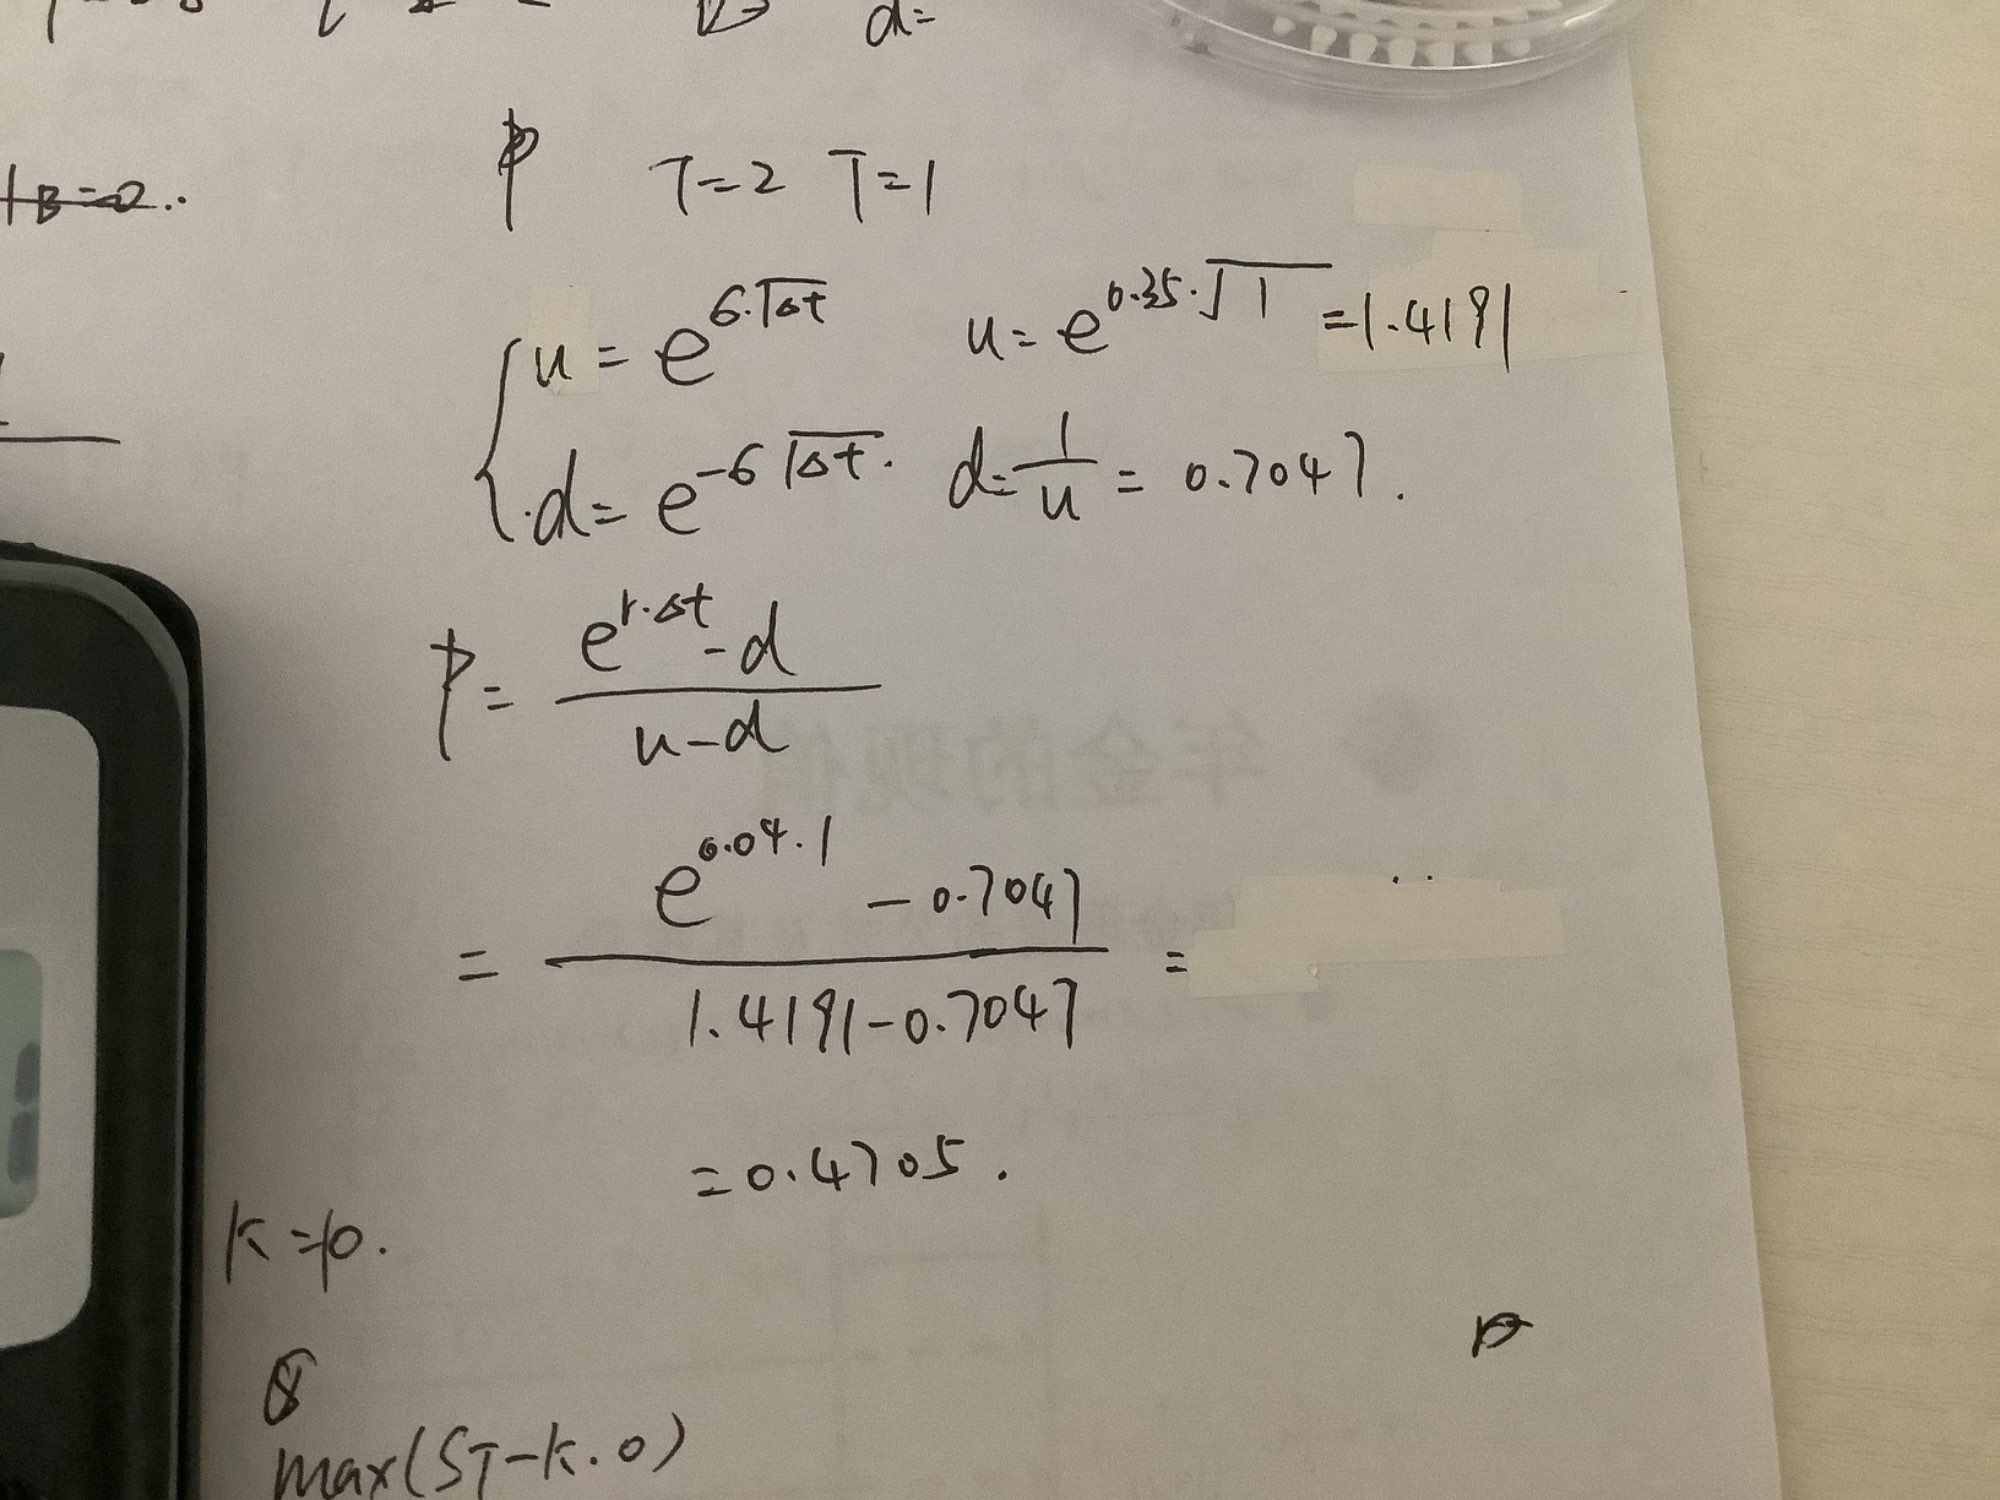 d=
+B=0..
P T=2 T=1
u=e^{6·√Δt} u=e^{0.35·√1}=1.4191
d=e^{-6√Δt}. d=1/u=0.7047.
P=(e^{r·Δt}-d)/(u-d)
=(e^{0.04·1}-0.7047)/(1.4191-0.7047)=
=0.4705.
K=10.
max(ST-K.0)